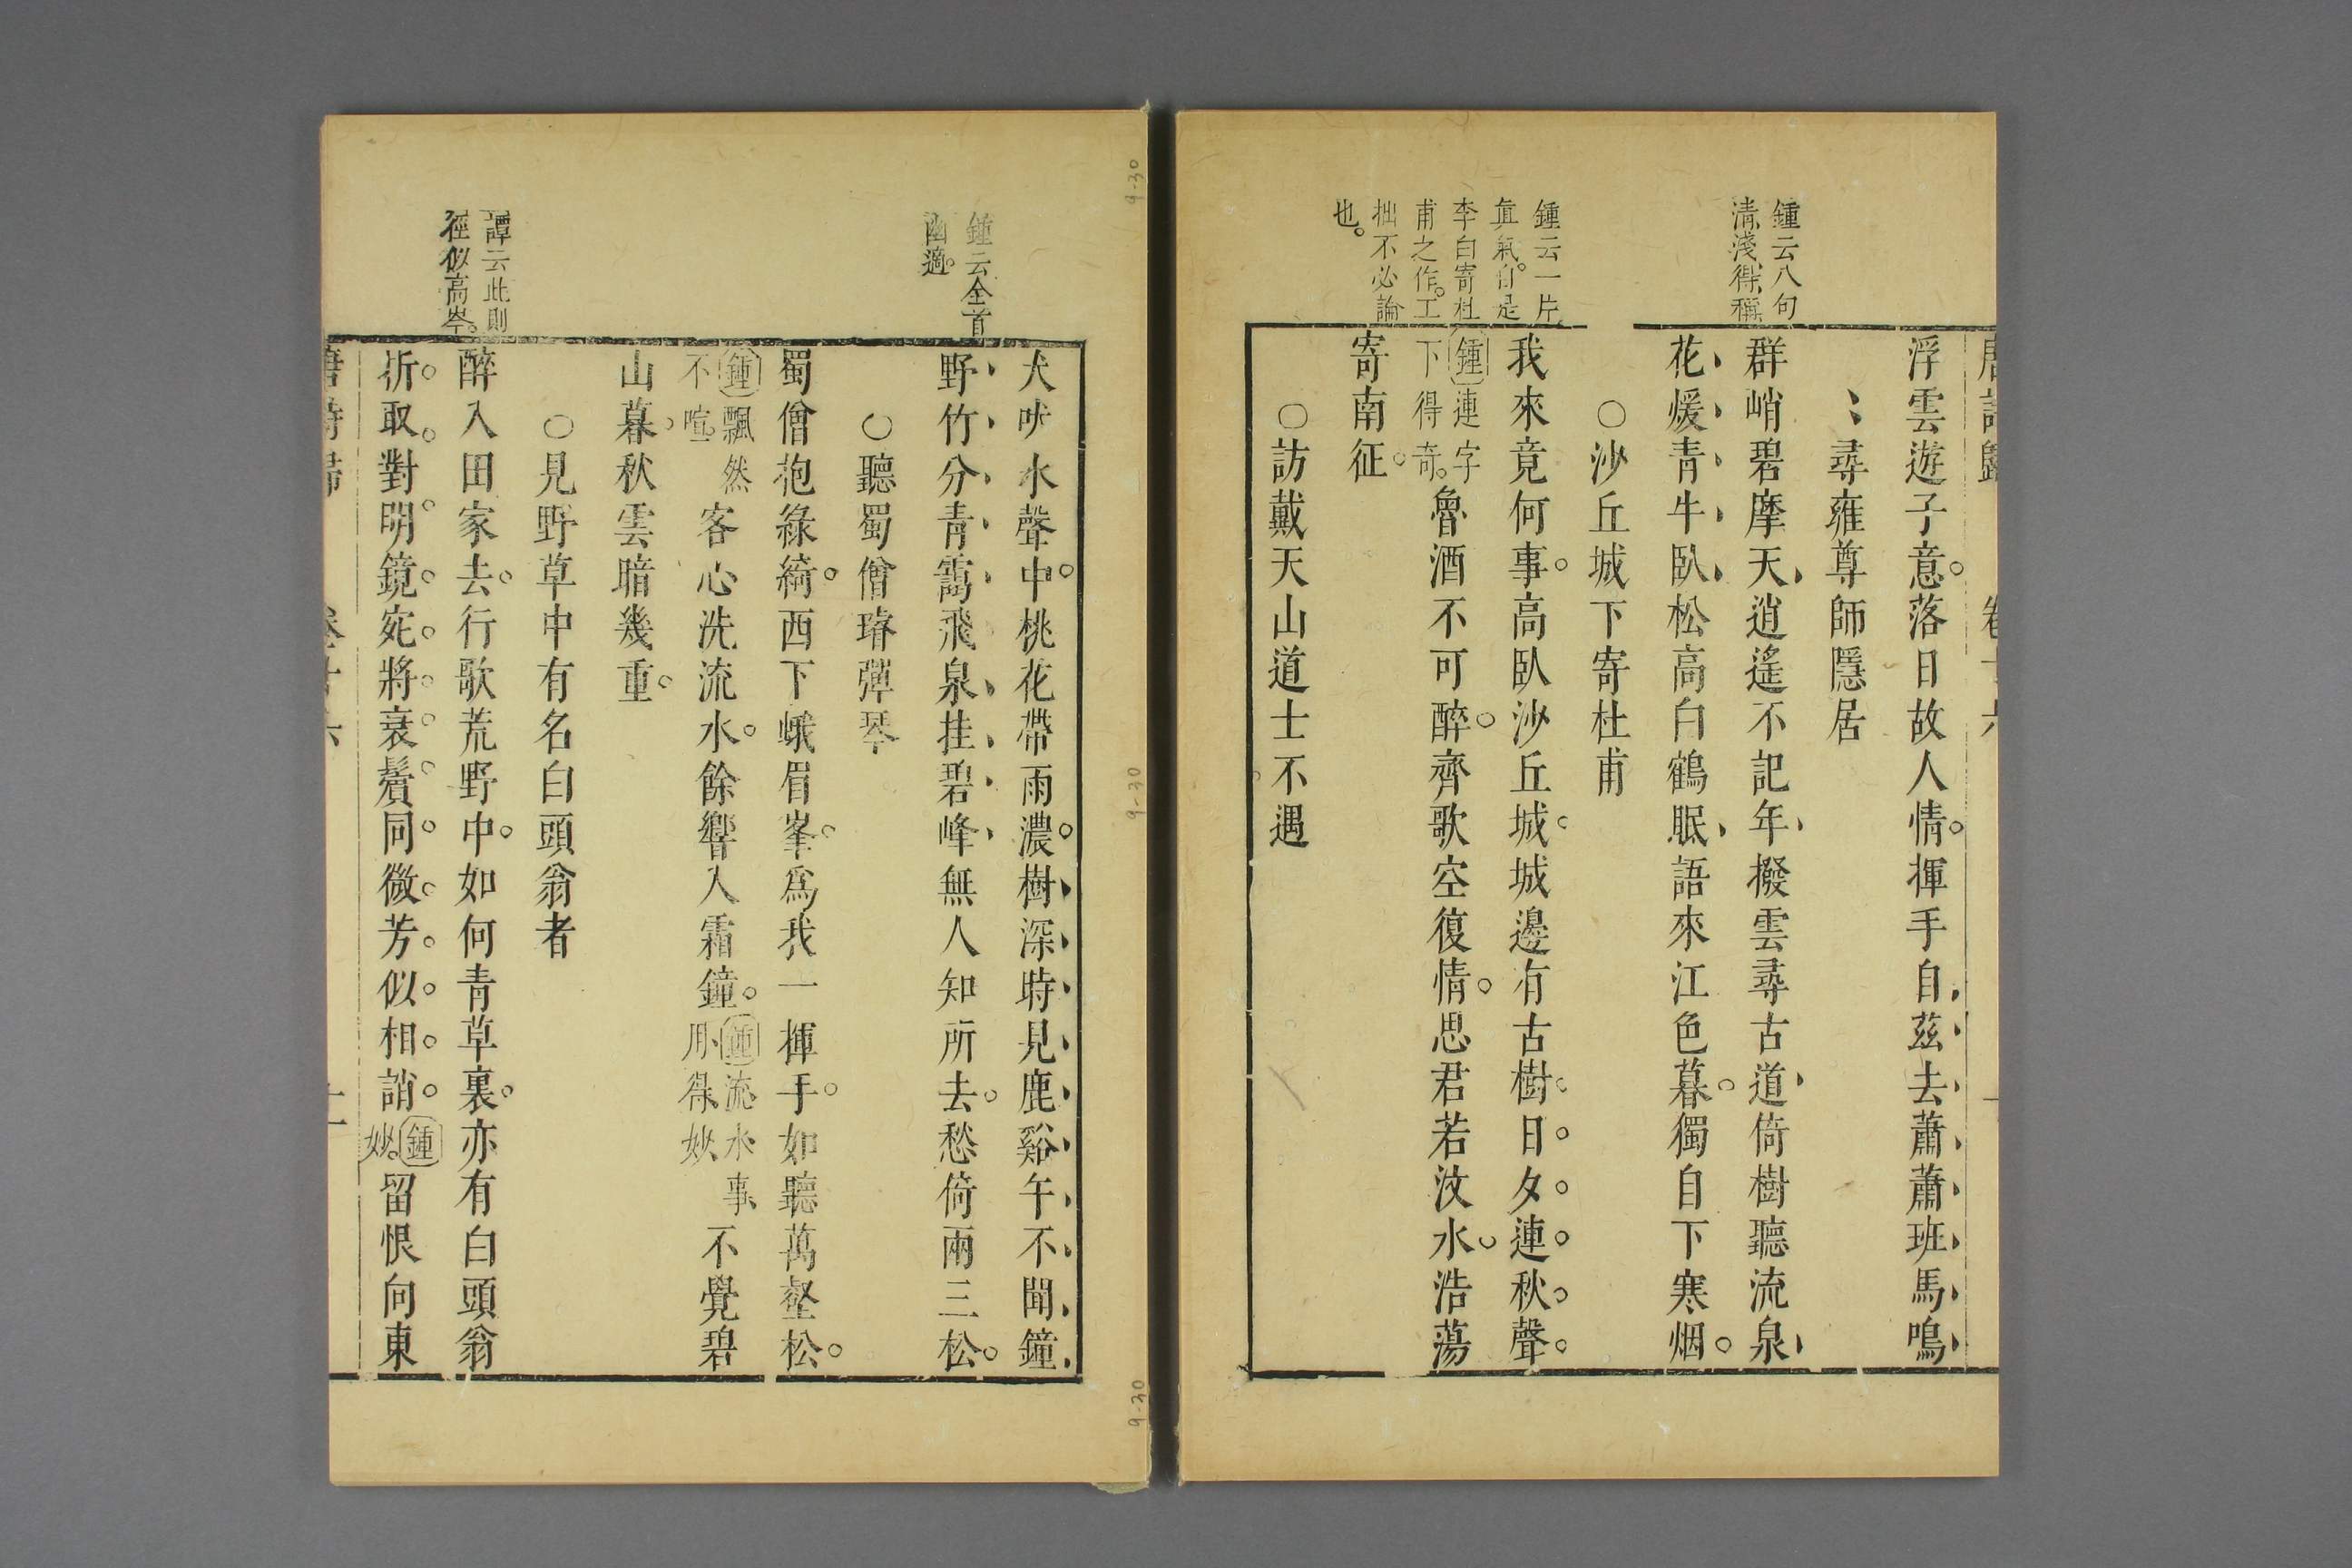 鍾云八句
清淺得稱
浮雲遊子意落日故人情揮手自茲去蕭蕭班馬鳴
尋雍尊師隱居
群峭碧摩天逍遙不記年撥雲尋古道倚樹聽流泉
花煖青牛臥松高白鶴眠語來江色暮獨自下寒烟
○沙丘城下寄杜甫
鍾云一片
眞氣自是
李白寄杜
甫之作工
拙不必論
也
我來竟何事高臥沙丘城城邊有古樹日夕連秋聲
鍾連字
下得奇
魯酒不可醉齊歌空復情思君若汶水浩蕩
寄南征
○訪戴天山道士不遇
鍾云全首
幽適
犬吠水聲中桃花帶雨濃樹深時見鹿谿午不聞鐘
野竹分青靄飛泉挂碧峰無人知所去愁倚兩三松
○聽蜀僧濬彈琴
蜀僧抱綠綺西下峨眉峯爲我一揮手如聽萬壑松
鍾飄然
不喧
客心洗流水餘響入霜鐘
鍾流水事
用得妙
不覺碧
山暮秋雲暗幾重
○見野草中有名白頭翁者
譚云此則
徑似高岑
醉入田家去行歌荒野中如何青草裏亦有白頭翁
折取對明鏡宛將衰鬢同微芳似相誚
鍾
妙
留恨向東
唐詩歸